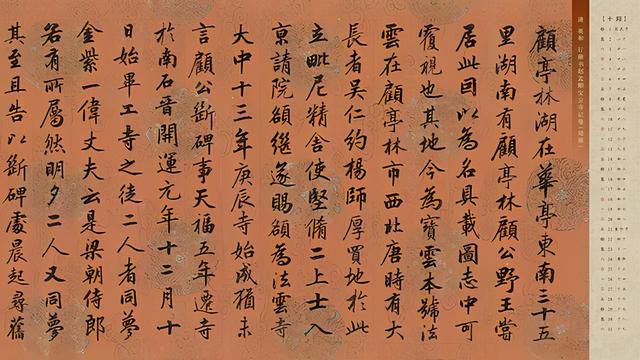 顧亭林湖在華亭東南三十五
里湖南有顧亭林顧公野王嘗
居此因以為名具載圖志中可
覆視也其地今為寶雲本號法
雲在顧亭林市西北唐時有大
長者吳仁約楊師厚買地於此
立毗尼精舍使堅脩二上士入
京請院額繼遂賜額為法雲寺
大中十三年庚辰寺始成猶未
言顧公斷碑事天福五年遷寺
於南石晉開運元年十二月十
日始畢工寺之徒二人者同夢
金紫一偉丈夫云是梁朝侍郎
若有所屬然明夕二人又同夢
其至且告以斷碑處晨起尋舊
清 英和 行楷书赵孟頫宝云寺记卷(局部)